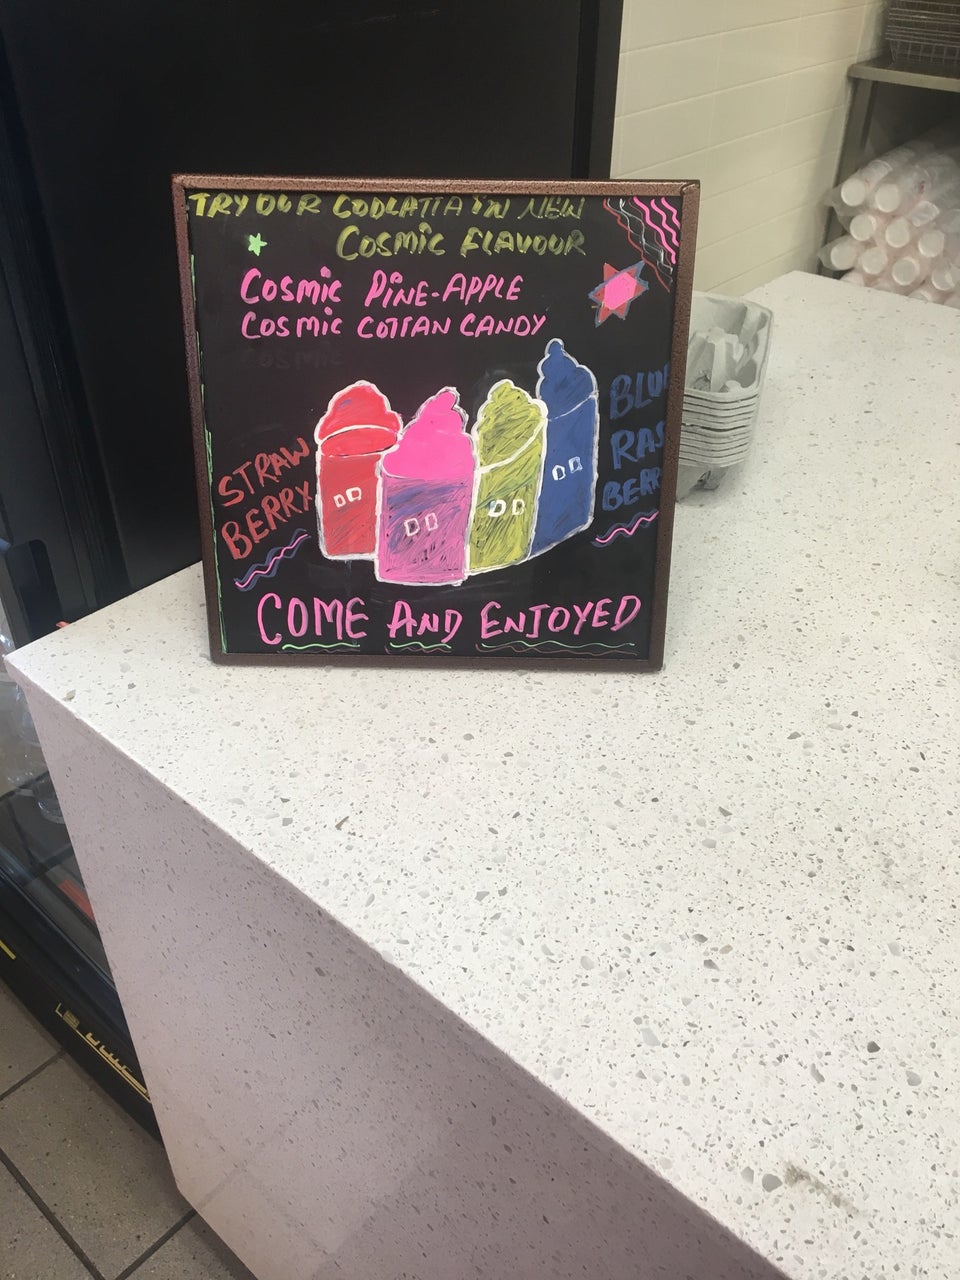 TRY OUR COOLATTA IN NEW
COSMIC FLAVOUR
COSMIC PINE-APPLE
COSMIC COTTAN CANDY
COSMIC
STRAW
BERRY
BLUE
RAS
BERR
DD
DD
DD
DD
COME AND ENJOYED